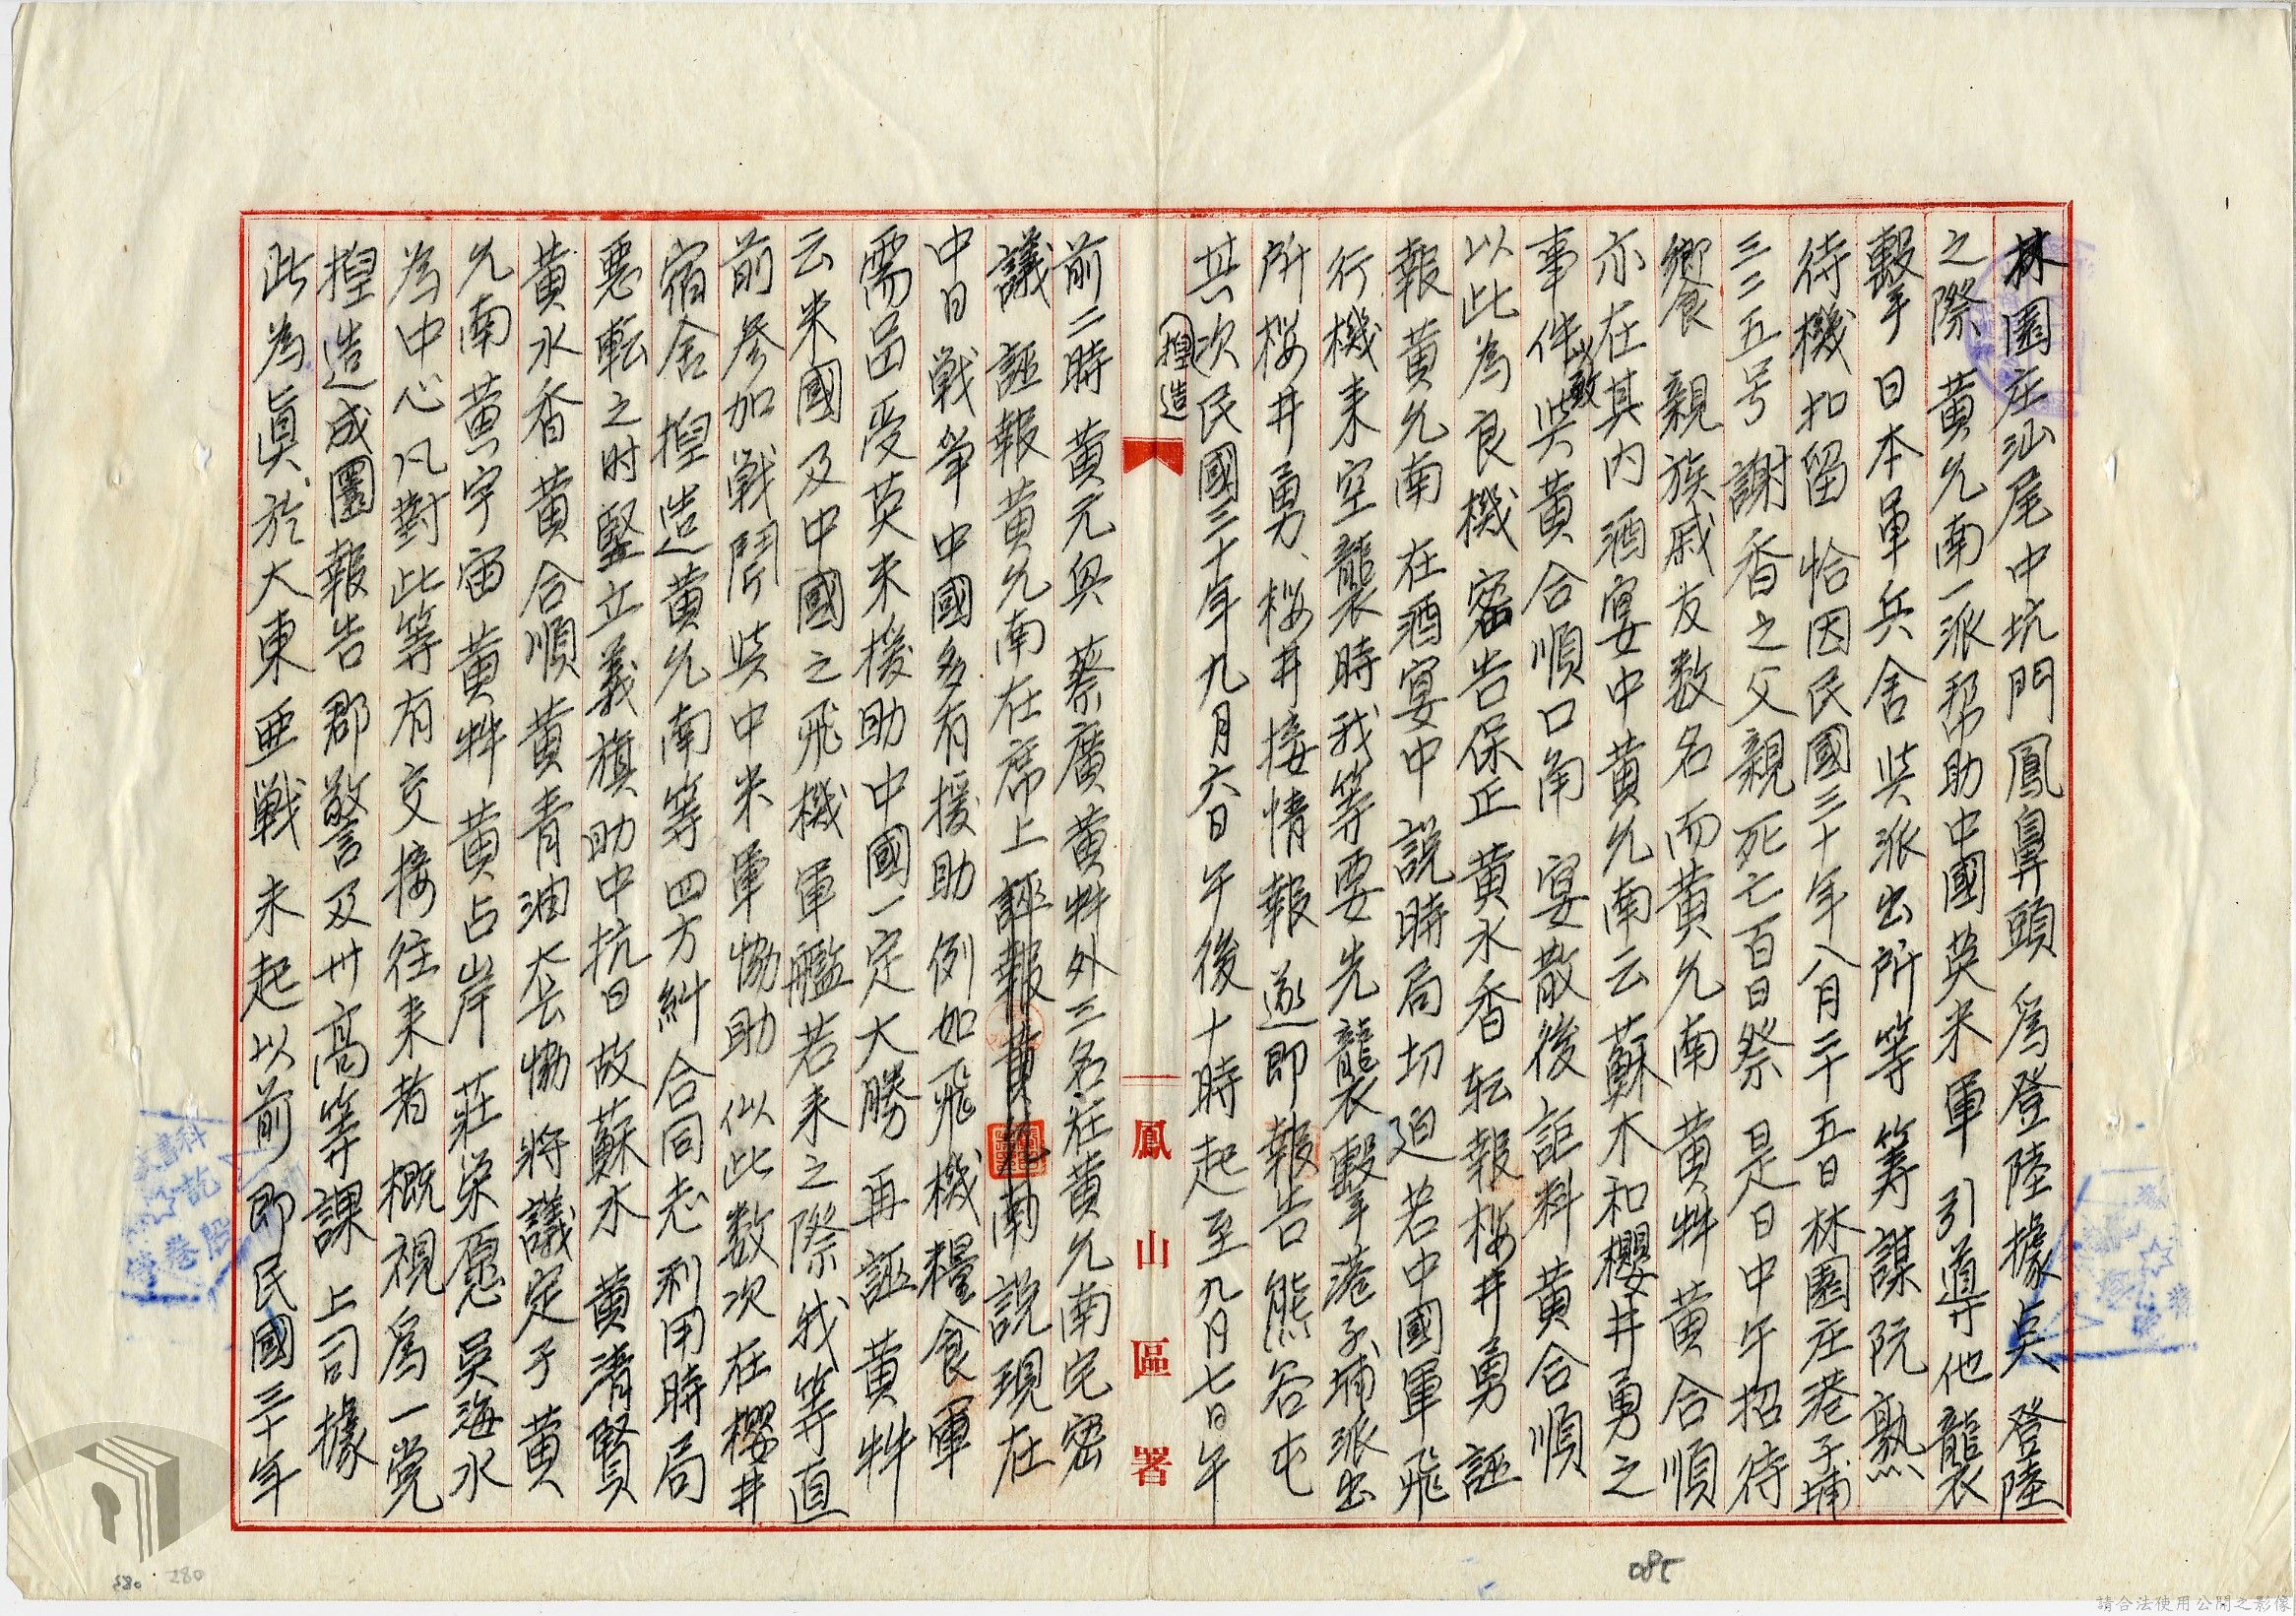 林園庄汕尾中坑門鳳鼻頭為登陸據奌登陸
之際黃允南一派帮助中國英米軍引導他襲
擊日本軍兵舍吳派出所等筹謀阮熟
待機扣留恰因民國三十年八月二十五日林園庄港子埔
三二五号謝香之父親死亡百日祭是日中午招待
饗食親族戚友数名而黃允南黃牪黃合順
亦在其內酒宴中黃允南云蘇木和櫻井勇之
事件以致與黃合順口角宴散後詎料黃合順
以此為良機密告保正黃水香転報桜井勇誣
報黃允南在酒宴中說時局切迫若中國軍飛
行機来空襲時我等要先襲擊港子埔派出
所桜井勇、桜井接情報遂即報告熊谷屯
其次揑造民國三十年九月六日午後十時起至九月七日午
鳳山區署
前二時黃元與蔡廣黃牪外三名在黃允南宅密
議誣報黃允南在席上誣報黃允南說現在
中日戦爭中國多有援助例如飛機糧食軍
需品受英米援助中國一定大勝再誣黃牪
云米國及中國之飛機軍艦若来之際我等直
前参加戦鬪與中米軍協助似此数次在櫻井
宿舍揑造黃允南等四方糾合同志利用時局
悪転之时堅立義旗助中抗日故蘇水黃清賢
黃水香黃合順黃青油大去協將議定于黃
允南黃宇宙黃牪黃占岸莊荣愿吳海水
為中心凡對此等有交接往来者概視為一党
揑造成圖報告郡警及卅高等課上司據
此為眞於大東亜戦未起以前即民國三十年
085
請合法使用公開之影像